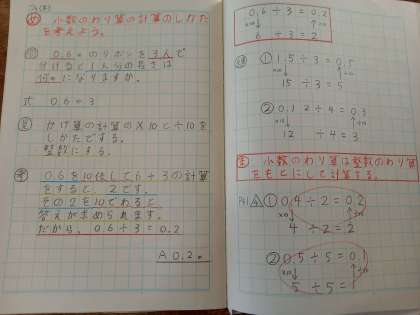 め 小数のわり算の計算のしかた
を考えよう。
問 0.6mのリボンを3人で
分けると1人分の長さは
何mになりますか。
式 0.6÷3
見 かけ算の計算の×10と÷10を
しかたでする。
整数にする。
考 0.6を10倍して6÷3の計算
をすると、2です。
その2を10でわると
答えが求められます。
だから、0.6÷3=0.2
A 0.2m
0.6÷3=0.2
×10 ÷10
6÷3=2
練 ① 1.5÷3=0.5
×10 ÷10
15÷3=5
② 0.12÷4=0.3
×10 ÷10
12÷4=3
ま 小数のわり算は整数のわり算
をもとにして計算する。
P41 4 ① 0.4÷2=0.2
×10 ÷10
4÷2=2
② 0.5÷5=0.1
×10 ÷10
5÷5=1